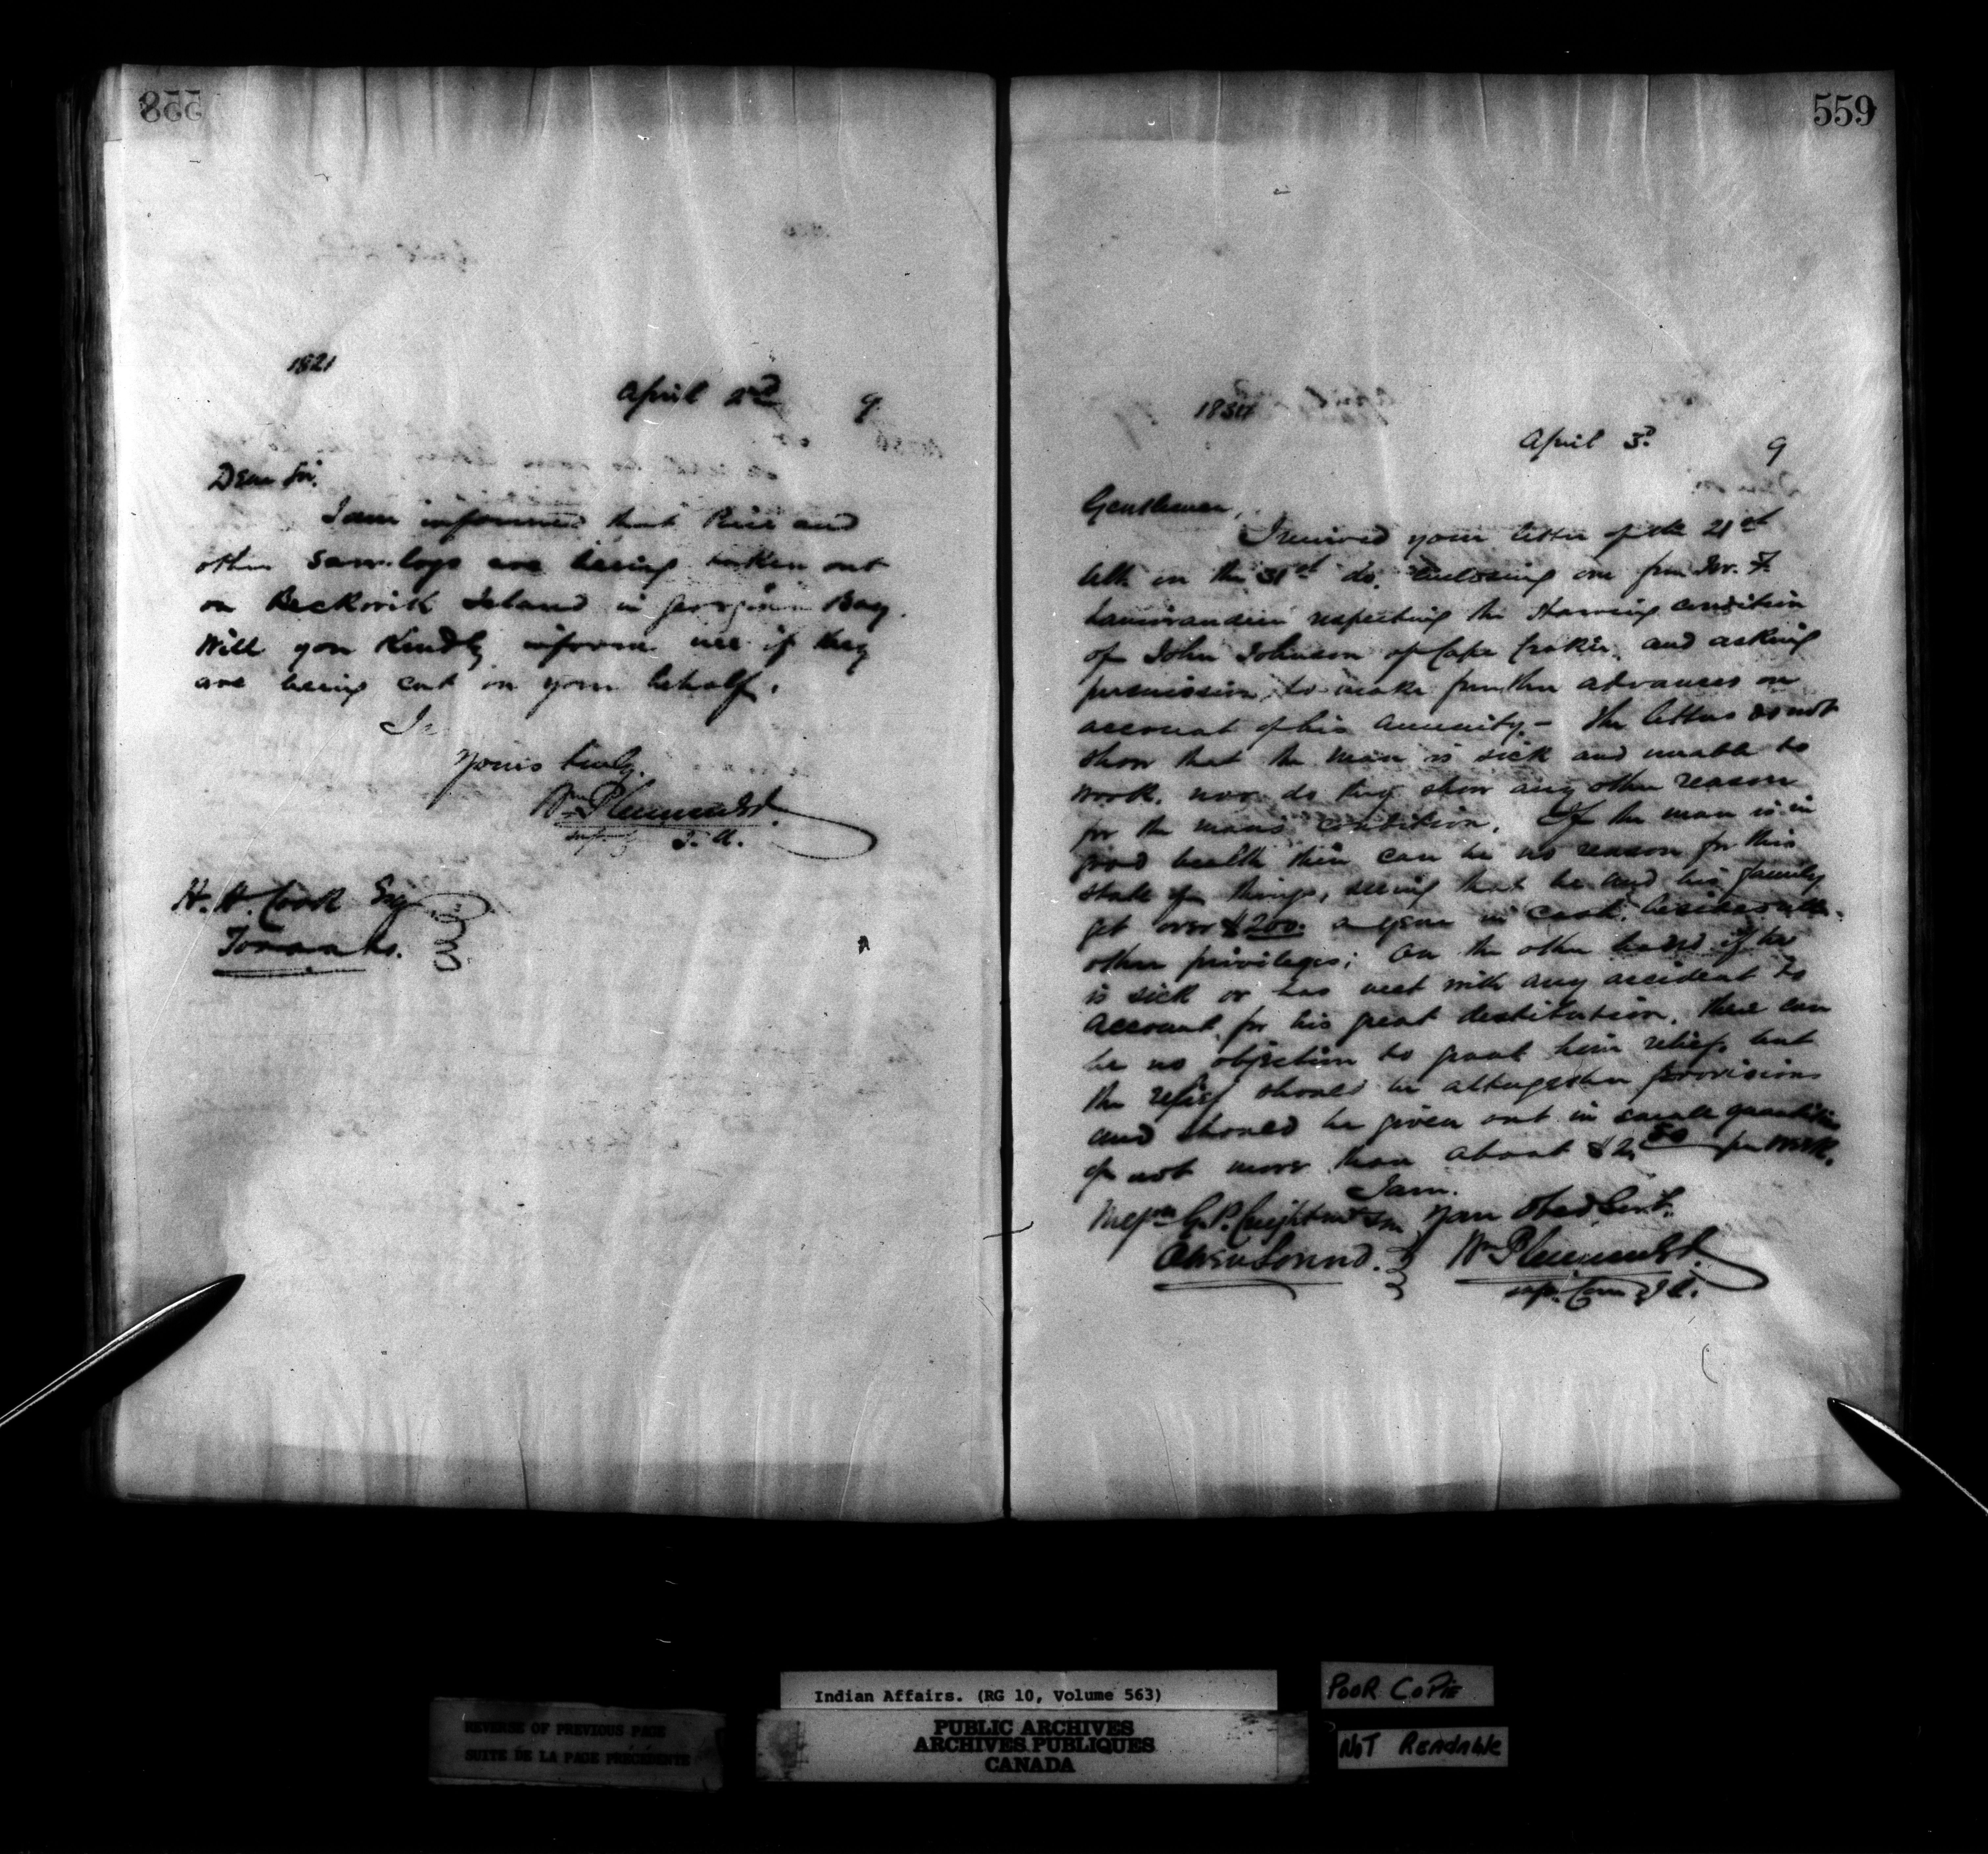 558
1821
April 2nd 9
Dear Sir.
I am informed that Pine and
other Saw-logs are being taken out
on Beckwith Island in Georgian Bay.
Will you Kindly inform me if they
are being cut on your behalf.
Yours truly.
Wm Plummer
I. A.
H. H. Cook Esq
Toronto.
559
April 3d. 9
Gentlemen,
I received your letter of the 21st
ult on the 31st do. enclosing one from
respecting the Starving condition
of John Johnson of Cape Croker, and asking
permission to make further advances on
account of his annuity - The letters do not
show that the man is sick and unable to
work, nor do they show any other reason
for the mans condition. If the man is in
good health there can be no reason for this
state of things, seeing that he and his family
get over $200. a year in cash, besides
other privileges; On the other hand if he
is sick or has met with any accident to
account for his great destitution, there can
be no objection to grant him relief, but
the relief should be altogether provisions
and should be given out in small quantities
of not more than about $2.50 per week.
I am.
Your Obed Servt.
Messrs G. P. Creighton & Son
Owen Sound.
Wm Plummer
Supt. Com I A.
REVERSE OF PREVIOUS PAGE
SUITE DE LA PAGE PRÉCÉDENTE
Indian Affairs. (RG 10, Volume 563)
PUBLIC ARCHIVES
ARCHIVES PUBLIQUES
CANADA
POOR COPIE
NOT READABLE